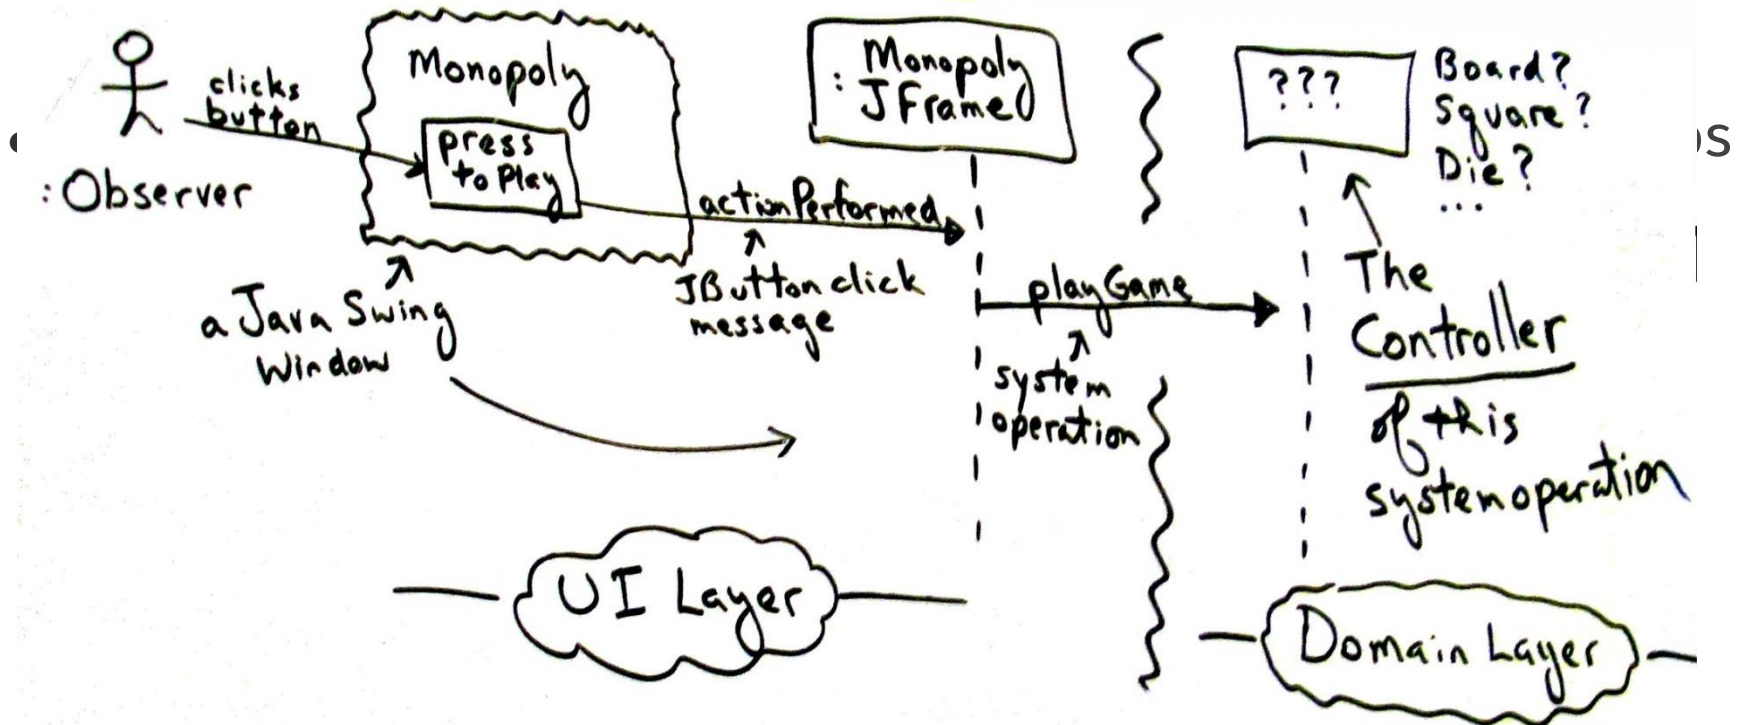 clicks
button
: Observer
Monopoly
press
to Play
a Java Swing
Window
actionPerformed
JButton click
message
Monopoly
: JFrame
playGame
system
operation
???
Board?
Square?
Die?
...
The
Controller
of this
system operation
UI Layer
Domain Layer
s